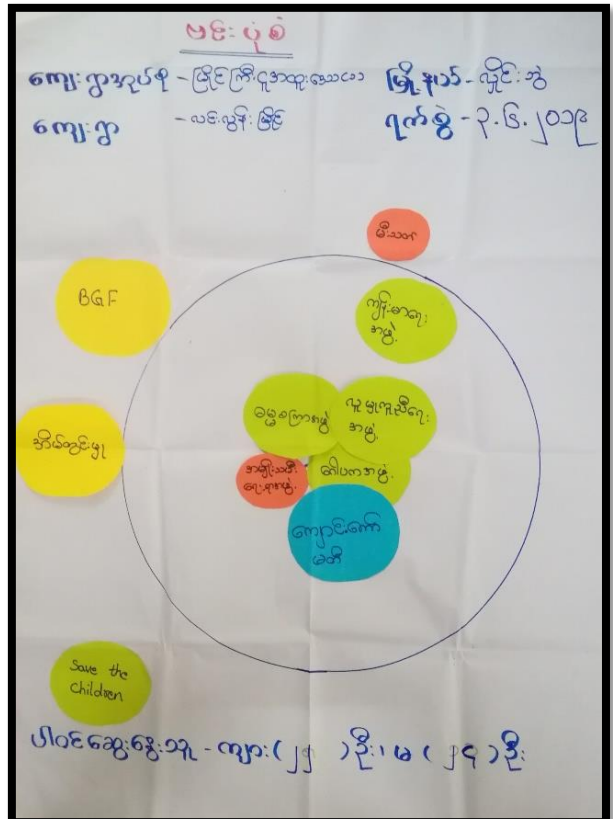 ဗင်းပုံစံ
ကျေးရွာအုပ်စု - မြိုင်ကြီးငူအထူးဒေသ မြို့နယ် - လှိုင်းဘွဲ
ကျေးရွာ - လင်းလွန်းမြိုင် ရက်စွဲ - ၃.၆.၂၀၁၉
မီးသတ်
BGF
ကျန်းမာရေး
အဖွဲ့
ဓမ္မစကြာအဖွဲ့
လူမှုကူညီရေး
အဖွဲ့
အိမ်တွင်းမှု
အမျိုးသမီး
ရေးရာအဖွဲ့
ဂေါပကအဖွဲ့
ကျောင်းကော်
မတီ
Save the
Children
ပါဝင်ဆွေးနွေးသူ - ကျား ( ) ဦး၊ မ ( ) ဦး